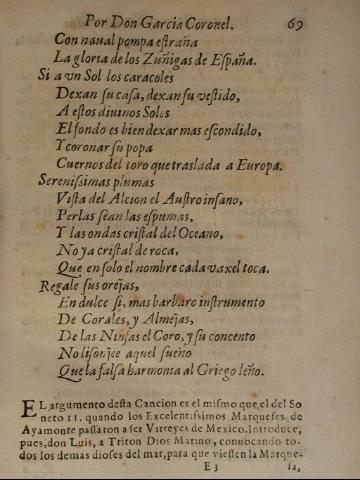 Por Don Garcia Coronel. 69
Con naual pompa estraña
La gloria de los Zuñigas de España.
Si a vn Sol los caracoles
Dexan su casa, dexan su vestido,
A estos diuinos Soles
El fondo es bien dexar mas escondido,
Y coronar su popa
Cuernos del toro que traslada a Europa.
Serenissimas plumas
Vista del Alcion el Austro insano,
Perlas sean las espumas,
Y las ondas cristal del Oceano,
No ya cristal de roca,
Que en solo el nombre cada vaxel toca.
Regale sus orejas,
En dulce si, mas barbaro instrumento
De Corales, y Almejas,
De las Ninfas el Coro, y su concento
No lisonjce aquel sueño
Que la falsa harmonia al Griego leño.
EL argumento desta Cancion es el mismo que el del So
neto 11. quando los Excelentissimos Marqueses de
Ayamonte passaron a ser Virreyes de Mexico. Introduce,
pues, don Luis, a Triton Dios Marino, conuocando to-
dos los demas dioses del mar, para que viessen la Marque-
E 3 sa,